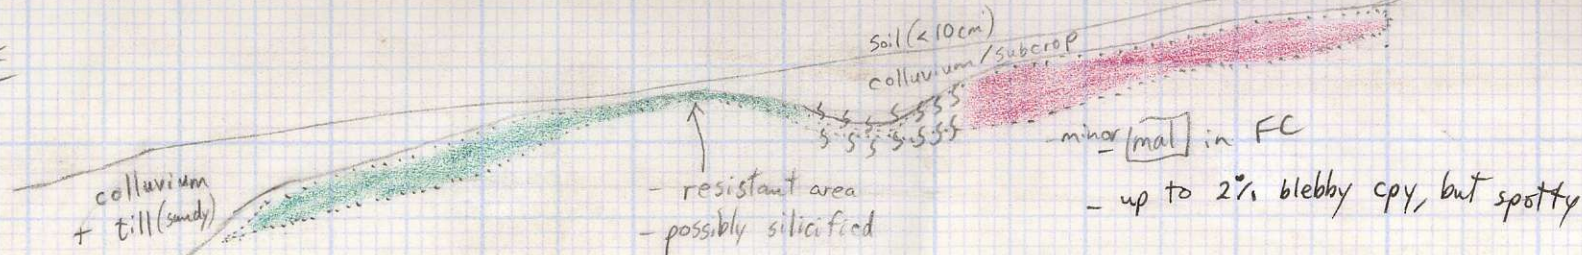 soil (<10cm)
colluvium/subcrop
colluvium
+ till (sandy)
- resistant area
- possibly silicified
- minor mal in FC
- up to 2% blebby cpy, but spotty